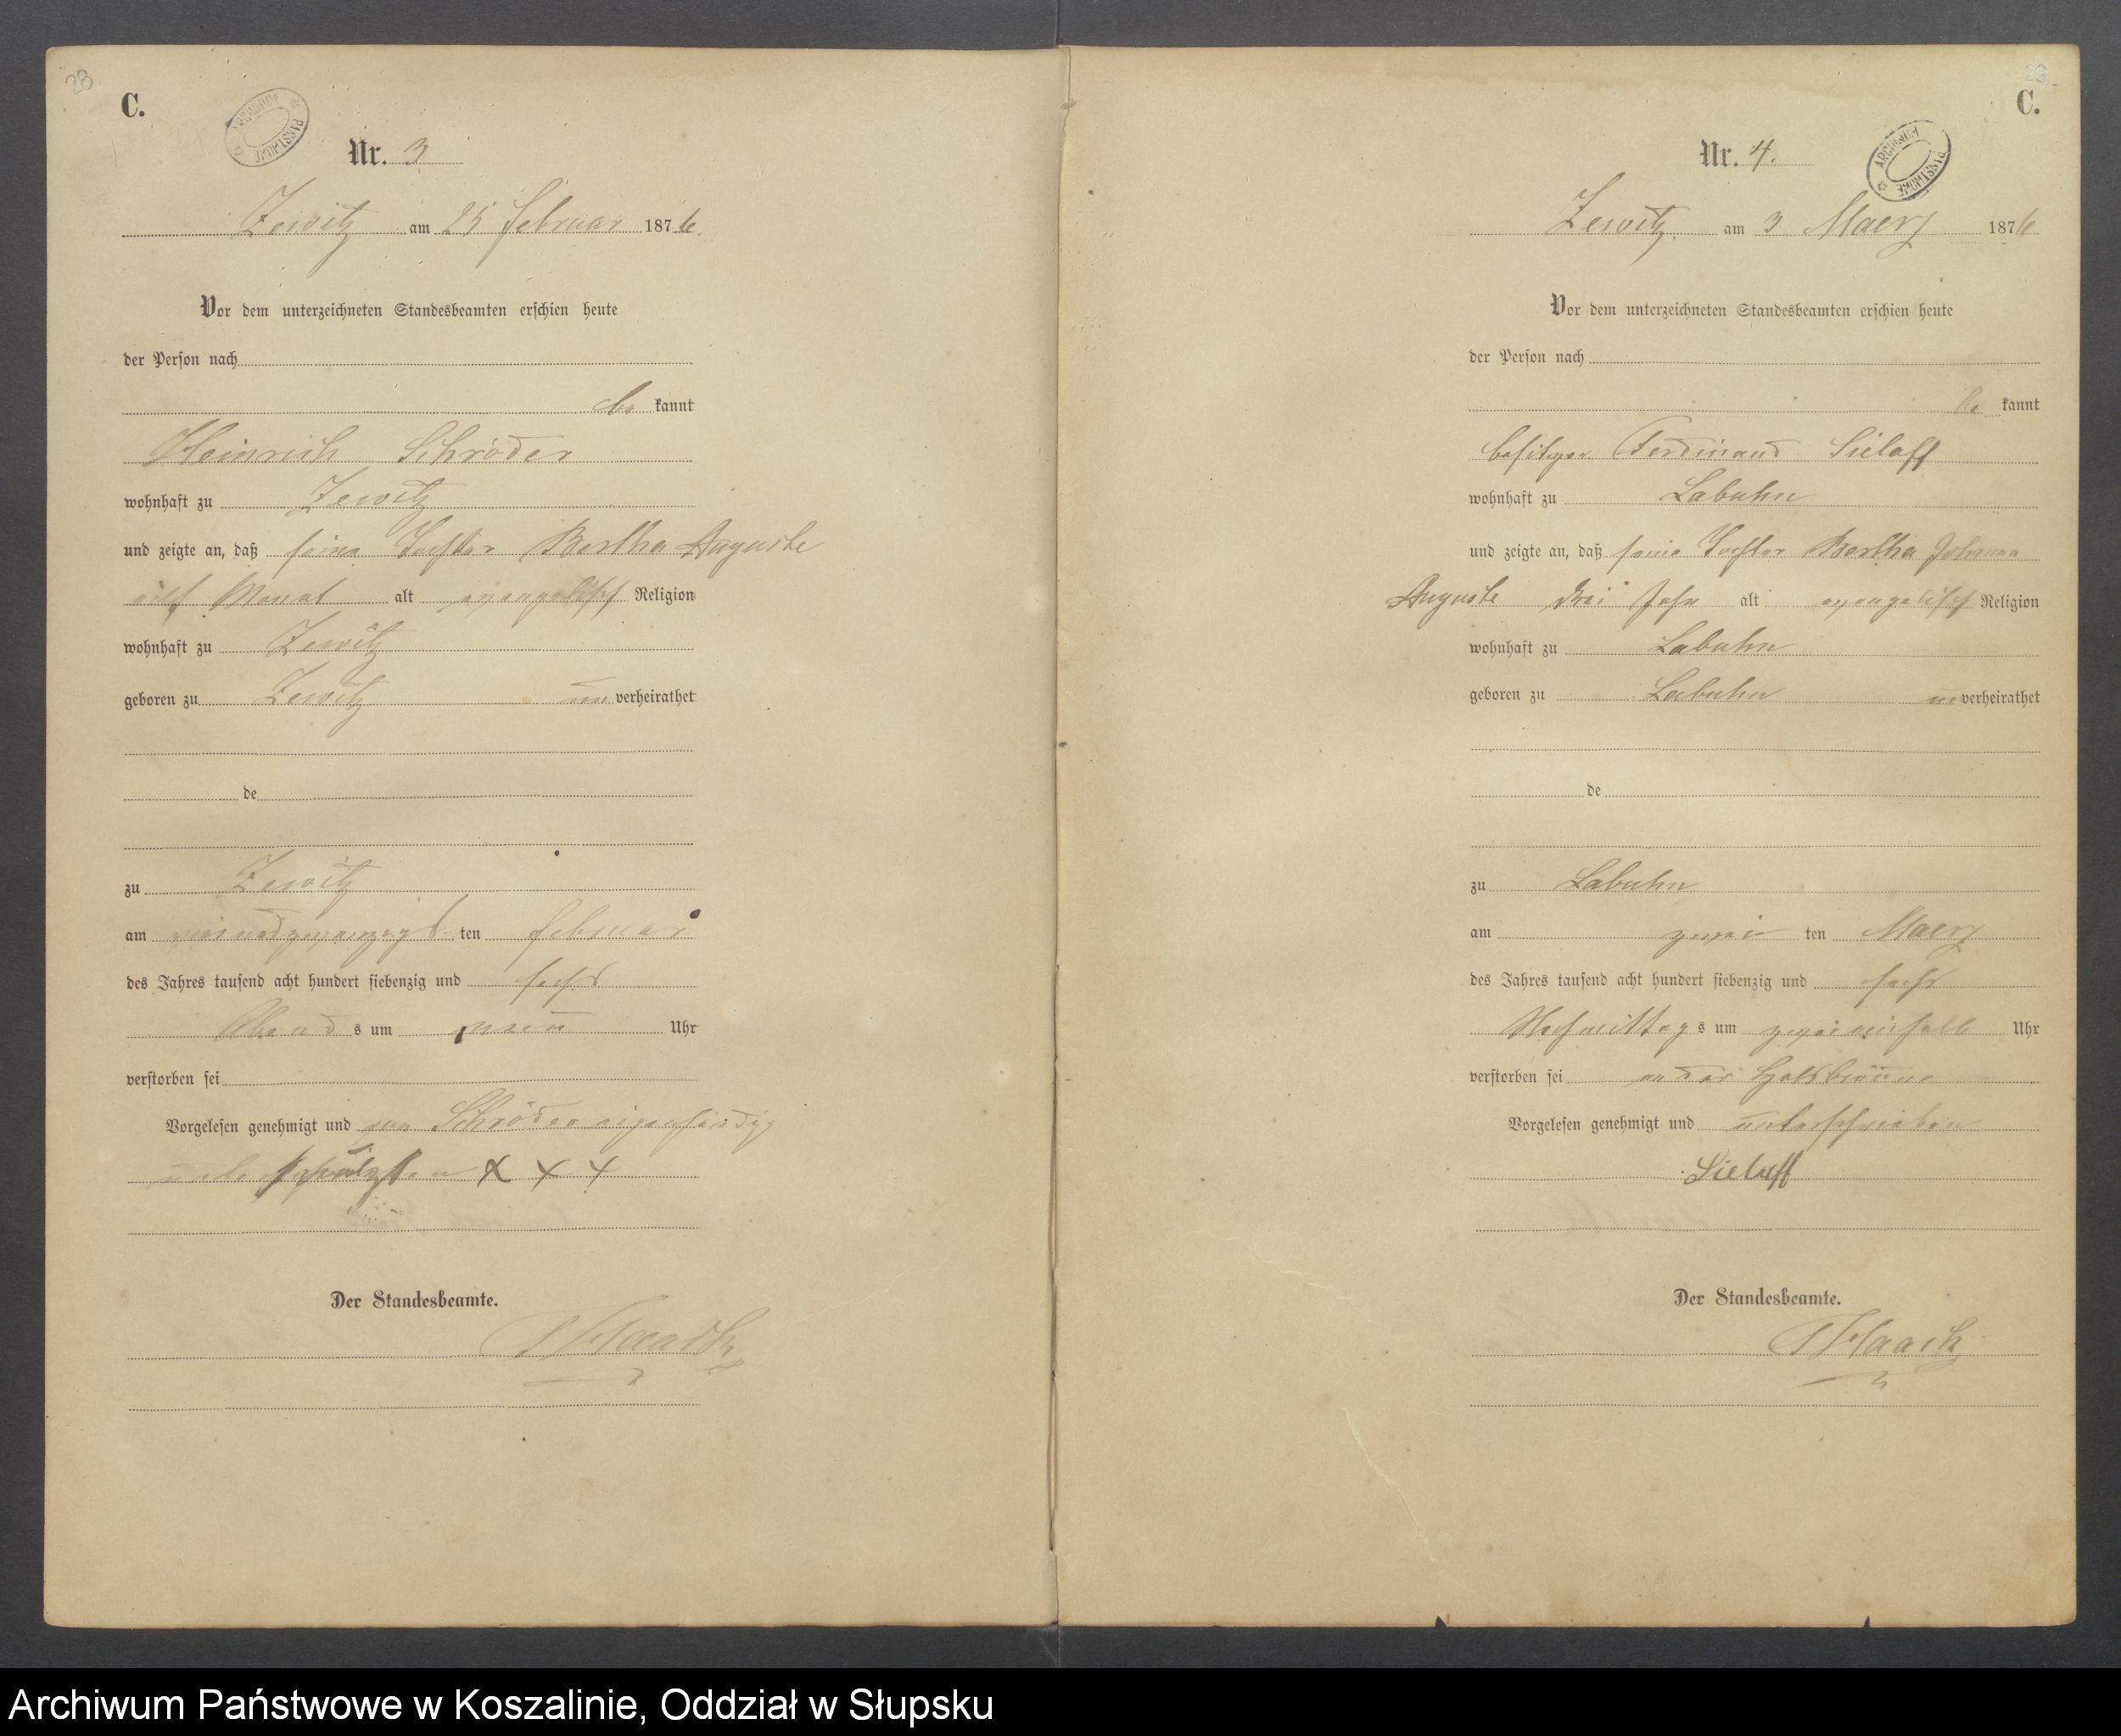 28
C.
ARCHIWUM PAŃSTWOWE
Nr. 3
Zewitz am 25 Februar 1876.
Vor dem unterzeichneten Standesbeamten erschien heute
der Person nach
be kannt
Heinrich Schröder
wohnhaft zu Zewitz
und zeigte an, daß seine Tochter Bertha Auguste
elf Monat alt evangelisch Religion
wohnhaft zu Zewitz
geboren zu Zewitz un verheirathet
de
zu Zewitz
am ten Februar
des Jahres tausend acht hundert siebenzig und sechs
Abend s um neun Uhr
verstorben sei
Vorgelesen genehmigt und von Schröder eigenhändig
X X X
Der Standesbeamte.
29
C.
ARCHIWUM PAŃSTWOWE
Nr. 4.
Zewitz am 3 Maerz 1876
Vor dem unterzeichneten Standesbeamten erschien heute
der Person nach
be kannt
besitzer Ferdinand Sielaff
wohnhaft zu Labuhn
und zeigte an, daß seine Tochter Bertha Johanna
Auguste drei Jahr alt evangelisch Religion
wohnhaft zu Labuhn
geboren zu Labuhn un verheirathet
de
zu Labuhn
am zwei ten Maerz
des Jahres tausend acht hundert siebenzig und sechs
Nachmittag s um Uhr
verstorben sei an der Halsbräune
Vorgelesen genehmigt und unterschrieben
Sielaff
Der Standesbeamte.
Archiwum Państwowe w Koszalinie, Oddział w Słupsku